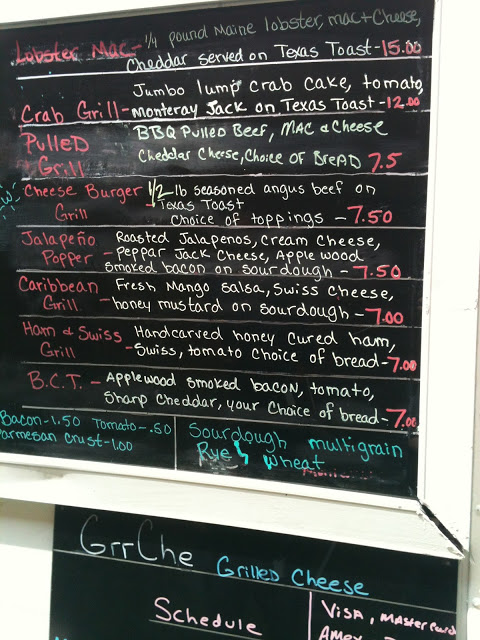 Lobster Mac- 1/4 pound Maine lobster, mac + cheese,
Cheddar served on Texas Toast - 15.00
Jumbo lump crab cake, tomato,
Crab Grill - Monteray Jack on Texas Toast - 12.00
Pulled BBQ Pulled Beef, Mac & Cheese
Grill Cheddar Cheese, Choice of Bread 7.5
Cheese Burger 1/2 lb seasoned angus beef on
Grill - Texas Toast
Choice of toppings - 7.50
Jalapeño Roasted Jalapenos, Cream Cheese,
Popper - Peppar Jack Cheese, Apple wood
smoked bacon on sourdough - 7.50
Caribbean Fresh Mango Salsa, Swiss Cheese,
Grill - honey mustard on sourdough - 7.00
Ham & Swiss Handcarved honey cured ham,
Grill - Swiss, tomato choice of bread - 7.00
B.C.T. - Applewood smoked bacon, tomato,
Sharp cheddar, your choice of bread - 7.00
Bacon - 1.50 Tomato - .50
Parmesan crust - 1.00
Sourdough multigrain
Rye wheat
GrrChe Grilled Cheese
Schedule
Visa, Mastercard
Amex